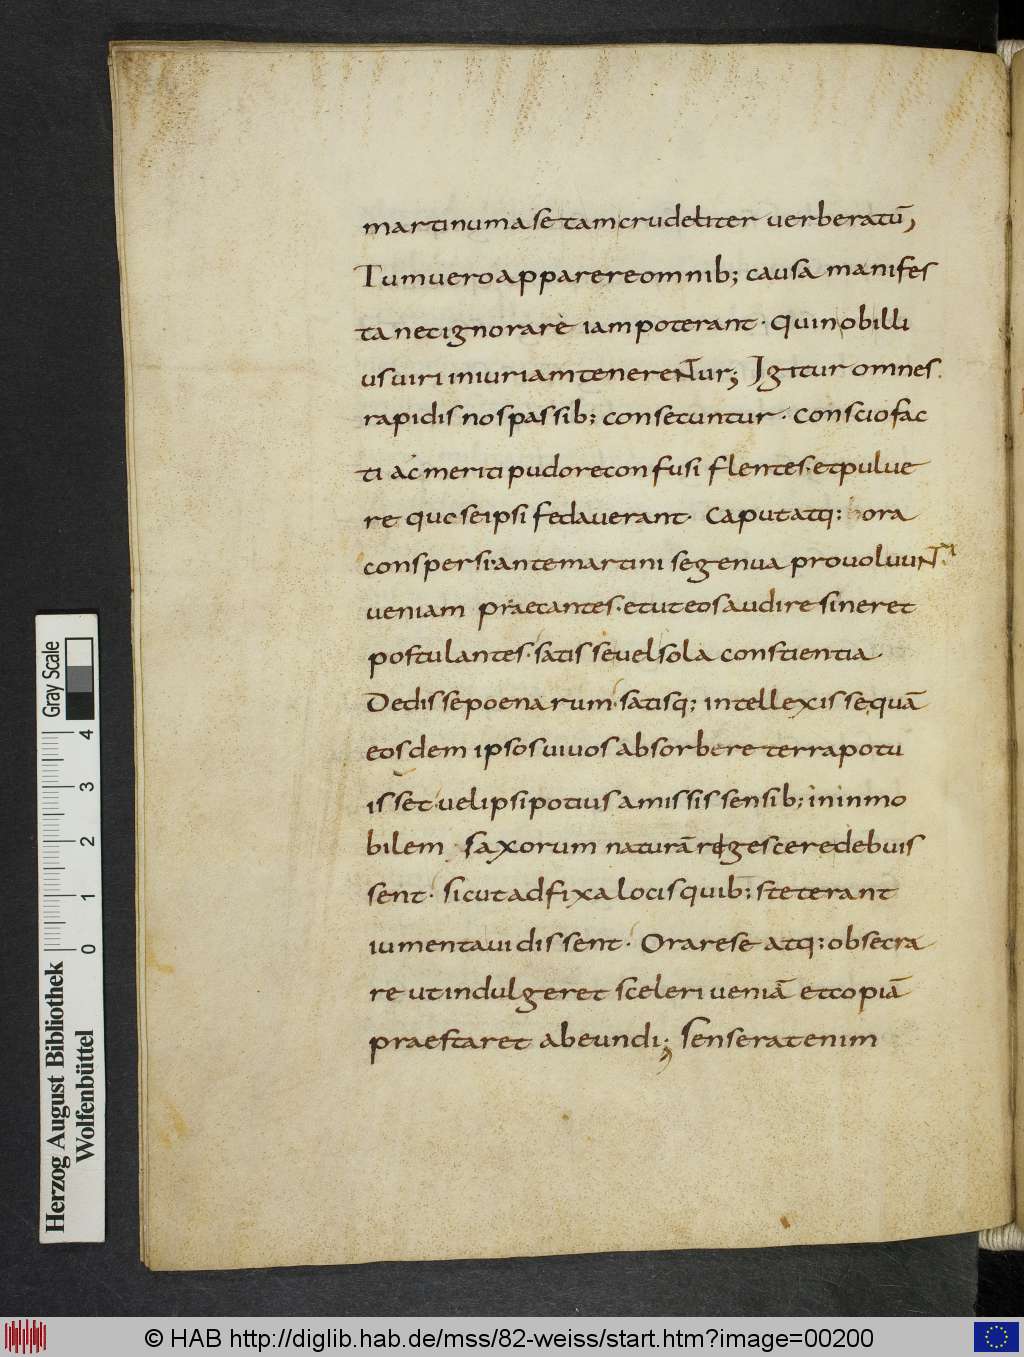 martinum a se tam crudeliter verberatū,
Tum vero apparere omnib; causa manifes
ta nec ignorare iam poterant · Qui nobilli
us viri iniuriam tenereNTur; Igitur omnes
rapidis nos passib; consecuntur · Conscio fac
ti ac meriti pudore confusi flentes · et pulve
re quo se ipsi fedaverant · Caput atq: ora
conspersi · ante martini se genua provolvuNT ·
veniam praecantes · et ut eos audire sineret
postulantes · satis se vel sola conscientia
Dedisse poenarum · satisq; intellexisse quā
eosdem ipsos vivos absorbere terra potu
isset · vel ipsi potius amissis sensib; in inmo
bilem saxorum naturā rigescere debuis
sent · sicut adfixa locis quib; steterant
iumenta vidissent · Orare se atq: obsecra
re ut indulgeret sceleri veniā et copiā
praestaret abeundi; Senserat enim
Gray Scale
4
3
2
1
0
Herzog August Bibliothek
Wolfenbüttel
© HAB http://diglib.hab.de/mss/82-weiss/start.htm?image=00200